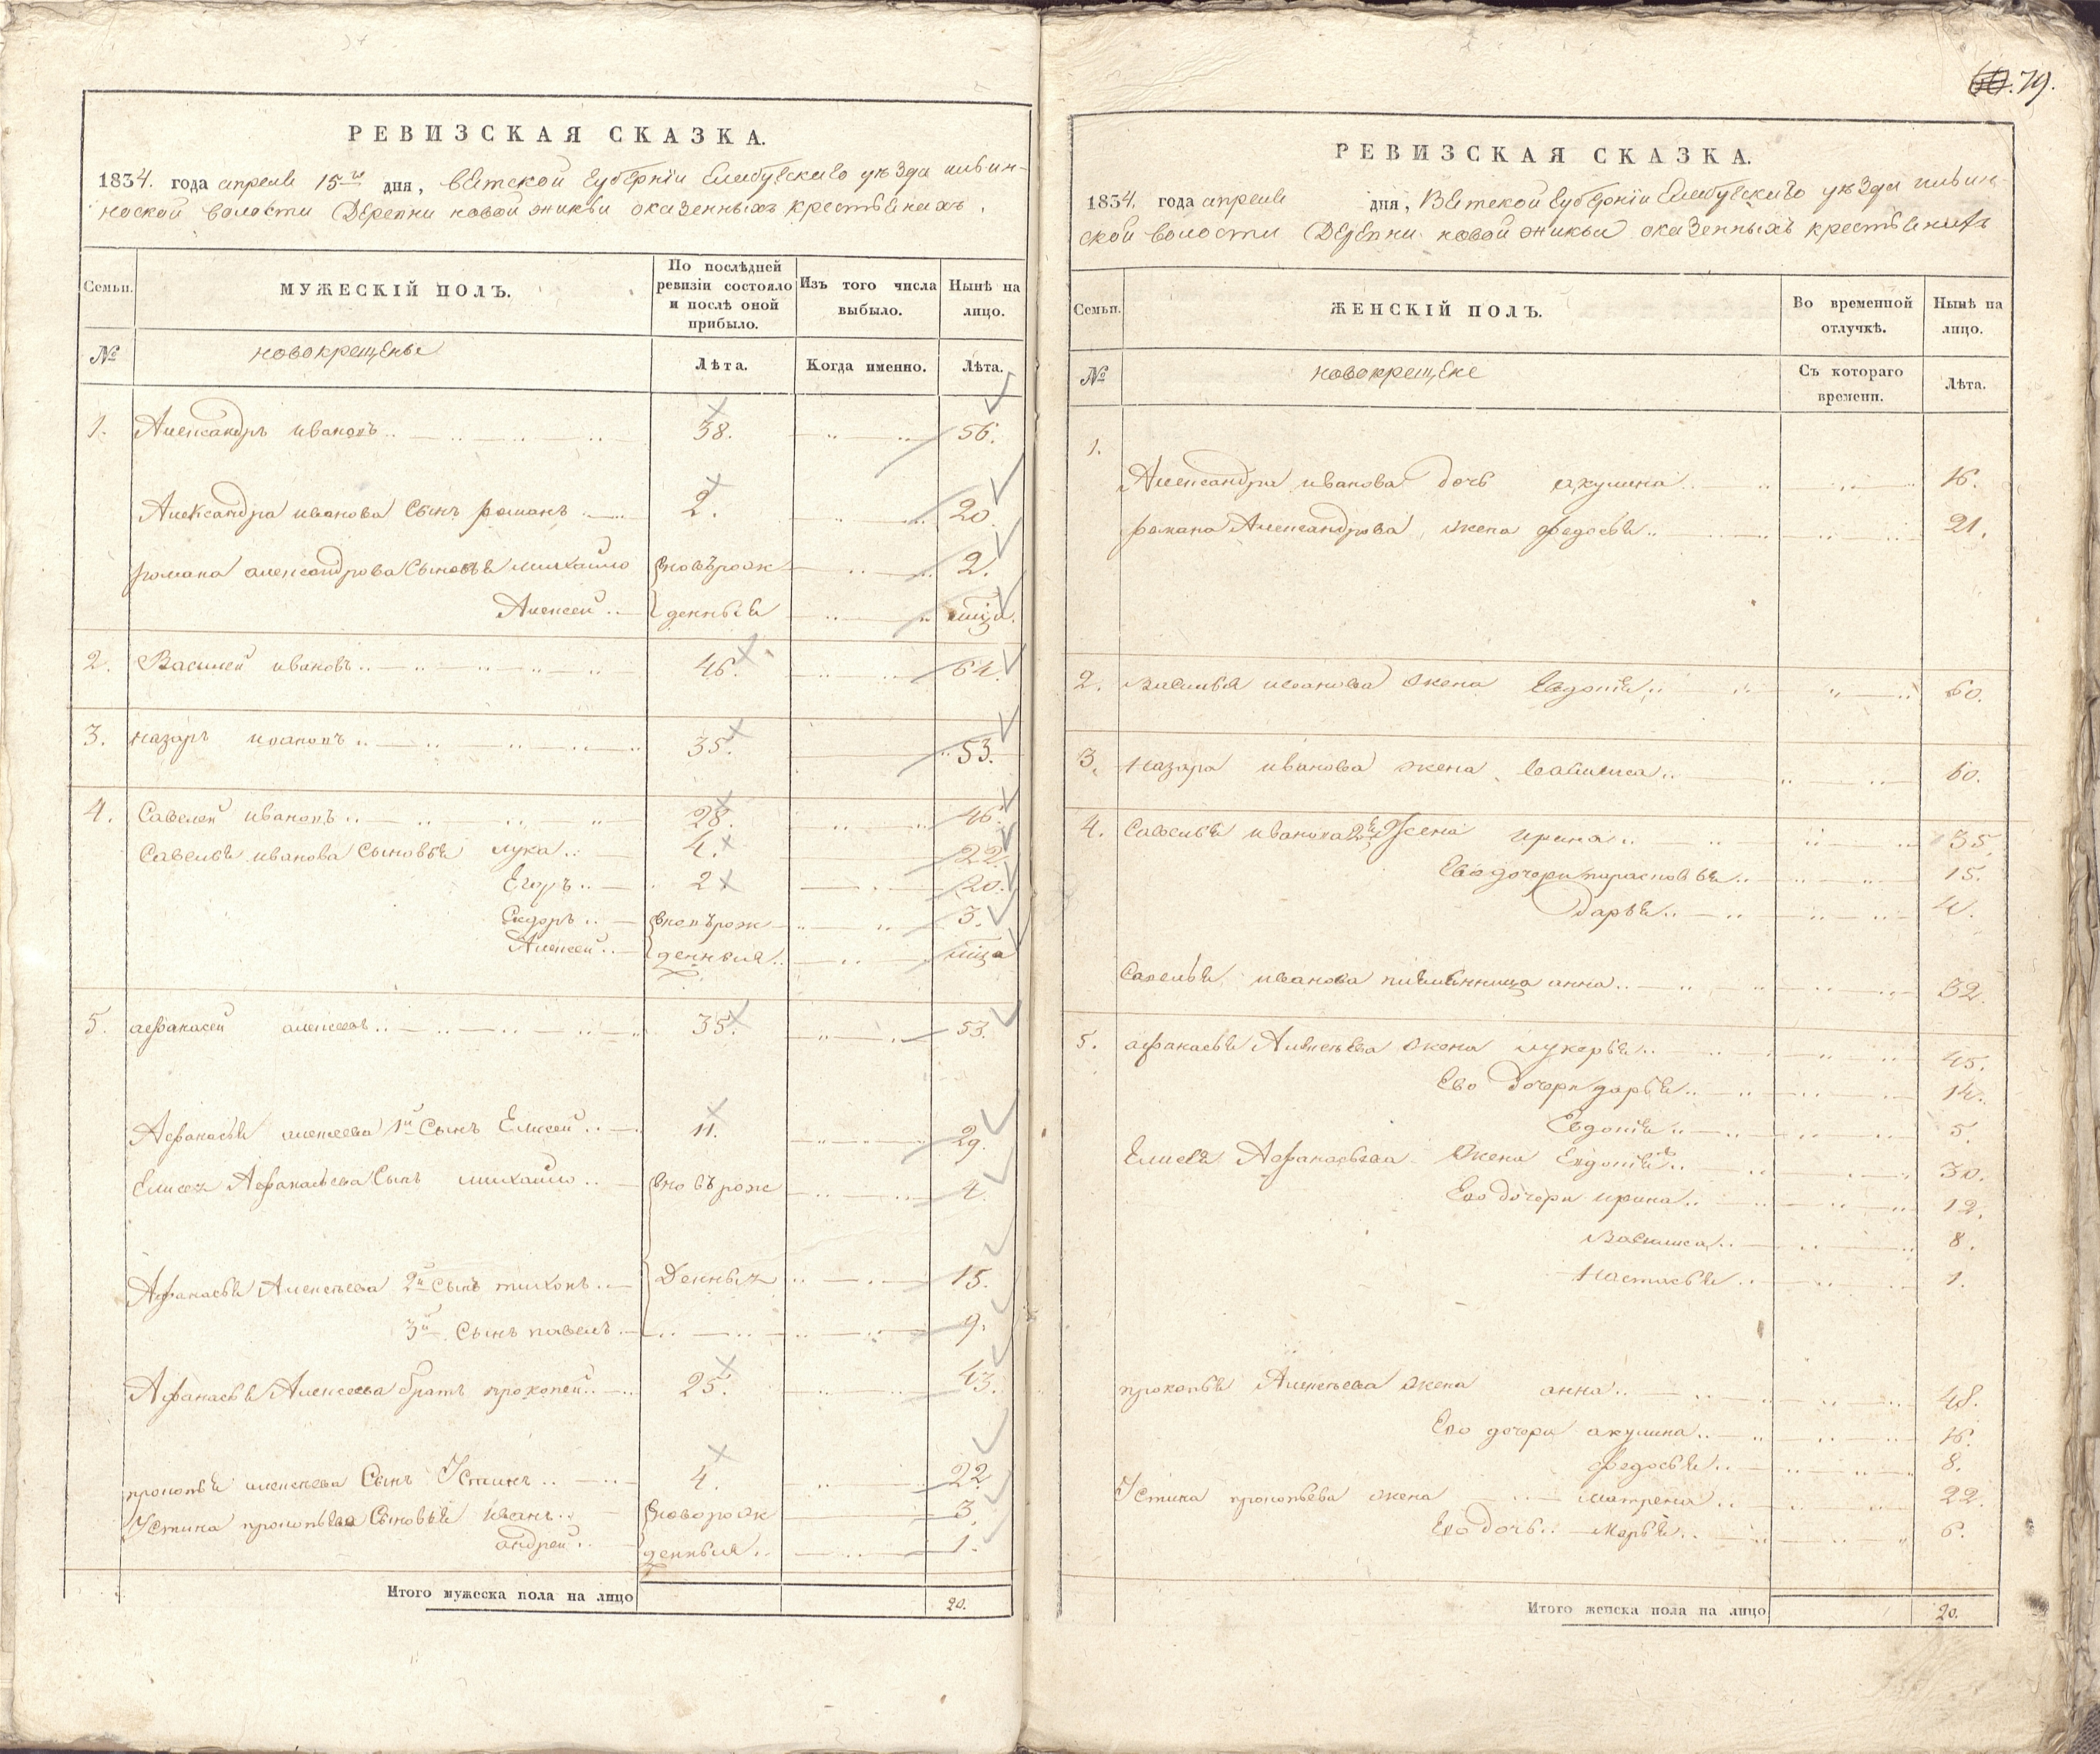 60. 79.
РЕВИЗСКАЯ СКАЗКА.
1834. года апреля 15го дня, Вятской губернии Елабугскаго уезда ильин-
ноской волости Деревни новой юникьи оказенныхъ крестьянахъ.
Семьи.
МУЖЕСКІЙ ПОЛЪ.
По послѣдней ревизіи состояло и послѣ оной прибыло.
Изъ того числа выбыло.
Нынѣ на лицо.
№ новокрещены Лѣта. Когда именно. Лѣта.
1. Александръ ивановъ 38. 56.
Александра иванова Сынъ романъ 2. 20.
романа александрова Сыновья михайло вновьрож 2.
Алексей денныя мца.
2. Василей ивановъ 46. 64.
3. назаръ ивановъ 35. 53.
4. Савелей ивановъ 28. 46.
Савелья иванова Сыновья лука 4. 22.
Егоръ 2. 20.
Сидоръ вновьрож 3.
Алексей денныя мца
5. афанасей алексеевъ 35. 53.
Афанасья алексеева 1й Сынъ Елисей 11. 29.
Елисея Афанасьева Сынъ михайло вновьрож 4.
Афанасья Алексеева 2й Сынъ тихонъ денныя 15.
3й Сынъ павелъ 9.
Афанасья Алексеева братъ прокопей 25. 43.
прокопья алексеева Сынъ Устинъ 4. 22.
Устина прокопьева Сыновья иванъ вноворож 3.
андрей денныя 1.
Итого мужеска пола на лицо 20.
РЕВИЗСКАЯ СКАЗКА.
1834. года апреля дня, Вятской губерніи Елабугскаго уѣзда ильин-
ской волости Деревни новой юникьи оказенныхъ крестьянахъ
Семьи.
ЖЕНСКІЙ ПОЛЪ.
Во временной отлучкѣ.
Нынѣ на лицо.
№ новокрещене Съ котораго времени. Лѣта.
1.
Александра иванова дочь акулина 16.
романа Александрова жена федосья 21.
2. василья иванова жена Евдотия 60.
3. назара иванова жена василиса 60.
4. Савелья иванова 2я Жена ирина 35.
Ево дочери парасковья 15.
дарья 4.
Савелья иванова племянница анна 32.
5. афанасья Алексеева жена лукерья 45.
Ево дочери дарья 14.
Евдотия 5.
Елисея Афанасьева Жена Евдотия 30.
Ево дочери ирина 12.
Василиса 8.
Настасья 1.
прокопья Алексеева жена анна 48.
Ево дочери акулина 16.
федосья 8.
Устина прокопьева жена матрена 22.
Ево дочь марья 6.
Итого женска пола на лицо 20.